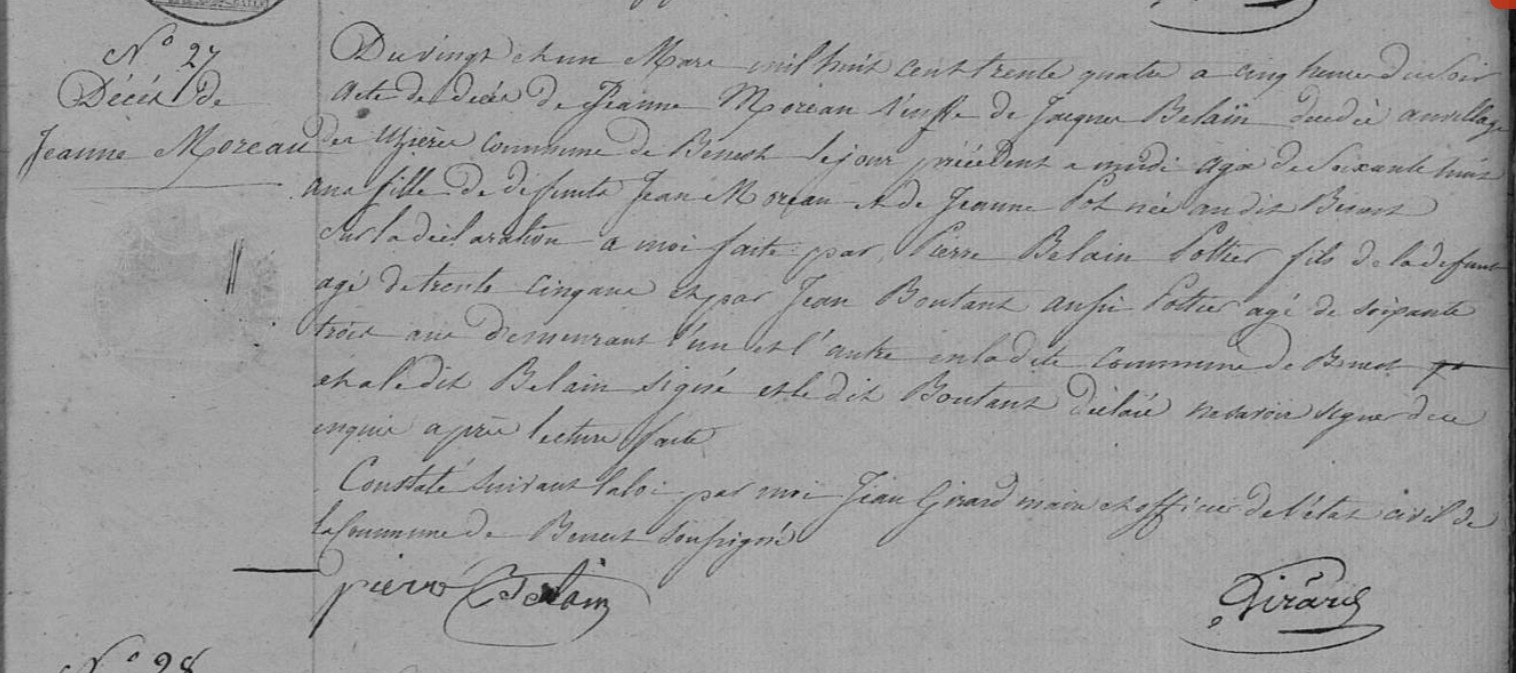 N° 27
Décés de
Jeanne Moreau
Du vingt et un Mars mil huit cent trente quatre a cinq heures du Soir
Acte de décès de Jeanne Moreau veufve de Jacques Belain décedée au village
des commune de Benest le jour précédent a midi agée de Soixante huit
ans fille de defunts Jean Moreau et de Jeanne Pot née au dit Benest
Sur la déclaration a moi faite par Pierre Belain Pottier fils de la defunte
agé de trente cinq ans et par Jean Boutant aussi Pottier agé de soixante
trois ans demeurant l'un et l'autre en la dite Commune de Benest
et a le dit Belain signé et le dit Boutant déclaré ne savoir signer de ce
enquis après lecture faite
Constaté suivant la loi par moi Jean Girard maire et officier de l'état civil de
la Commune de Benest soussigné
pierre Belain
Girard
N° 28